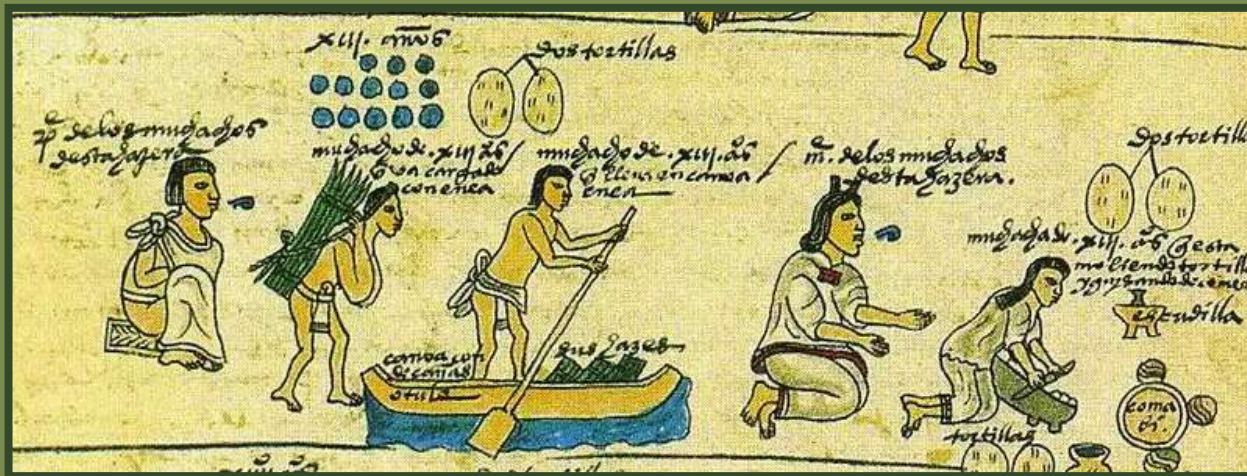 xiij. años
dos tortillas
pe. de los muchachos
desta hazera
muchacho de . xiij. as /
q va cargado
con enea
muchacho de . xiij. as /
q lleva en canoa
enea
me. de los muchachos
desta hazera.
dos tortill
muchacha de . xiij. as q esta
moliendo tortill
y guisando de cenar
escudilla
canoa con
de cañas
o tula
sus hazes
comal
tortillas